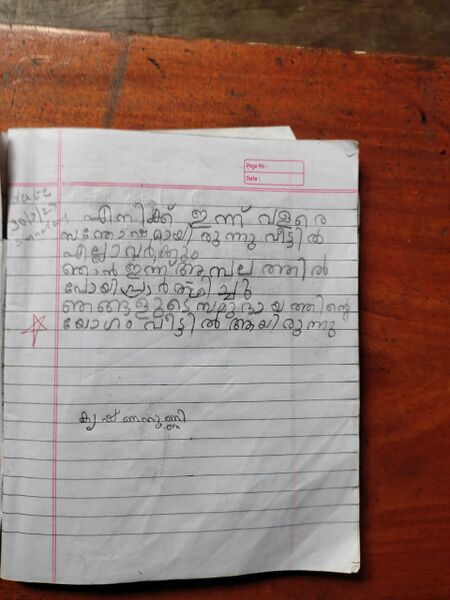 Page No :
Date :
date
30/7/23
sunday
എനിക്ക് ഇന്ന് വളരെ
സന്തോഷമായി രുന്നു വീട്ടിൽ
എല്ലാവർക്കും
ഞാൻ ഇന്ന് അമ്പല ത്തിൽ
പോയി പ്രാർത്ഥിച്ചു
ഞങ്ങളുടെ സമുദായ ത്തിന്റെ
യോഗം വീട്ടിൽ ആയിരുന്നു
കൃഷ്ണനുണ്ണി